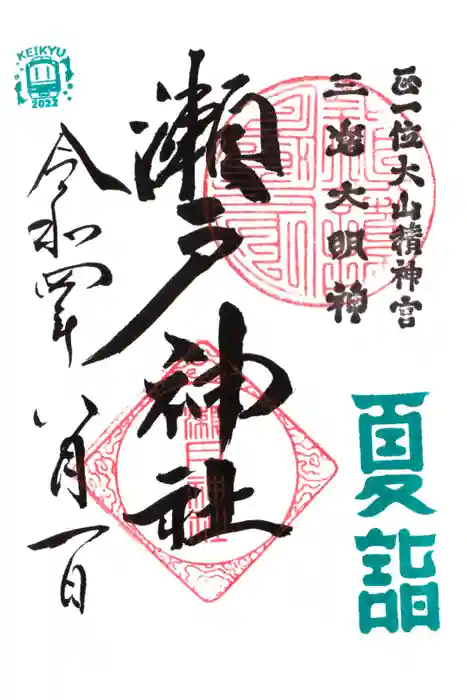 正一位大山積神宮
三嶋大明神
夏詣
瀬戸神社
令和四年八月一日
KEIKYU
2022